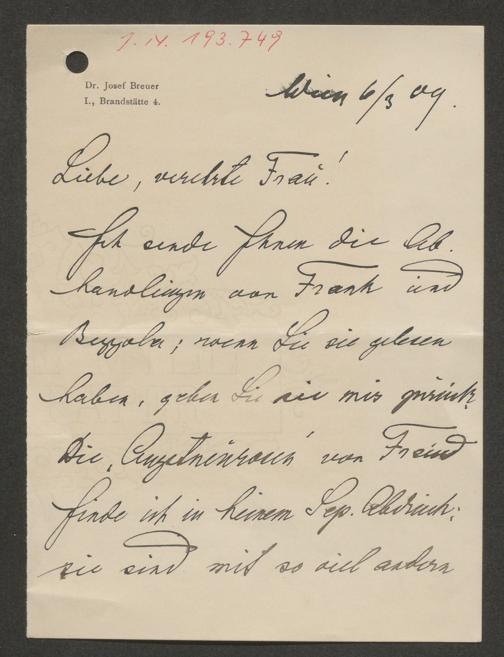 I. N. 193.749
Dr. Josef Breuer
I., Brandstätte 4.
Wien 6/3 09.
Liebe, verehrte Frau!
Ich sende Ihnen die Ab-
handlungen von Frank und
Bezzola; wenn Sie sie gelesen
haben, geben Sie sie mir zurück.
Die „Angstneurosen“ von Freud
finde ich in keinem Sep. Abdruck;
sie sind mit so viel andern